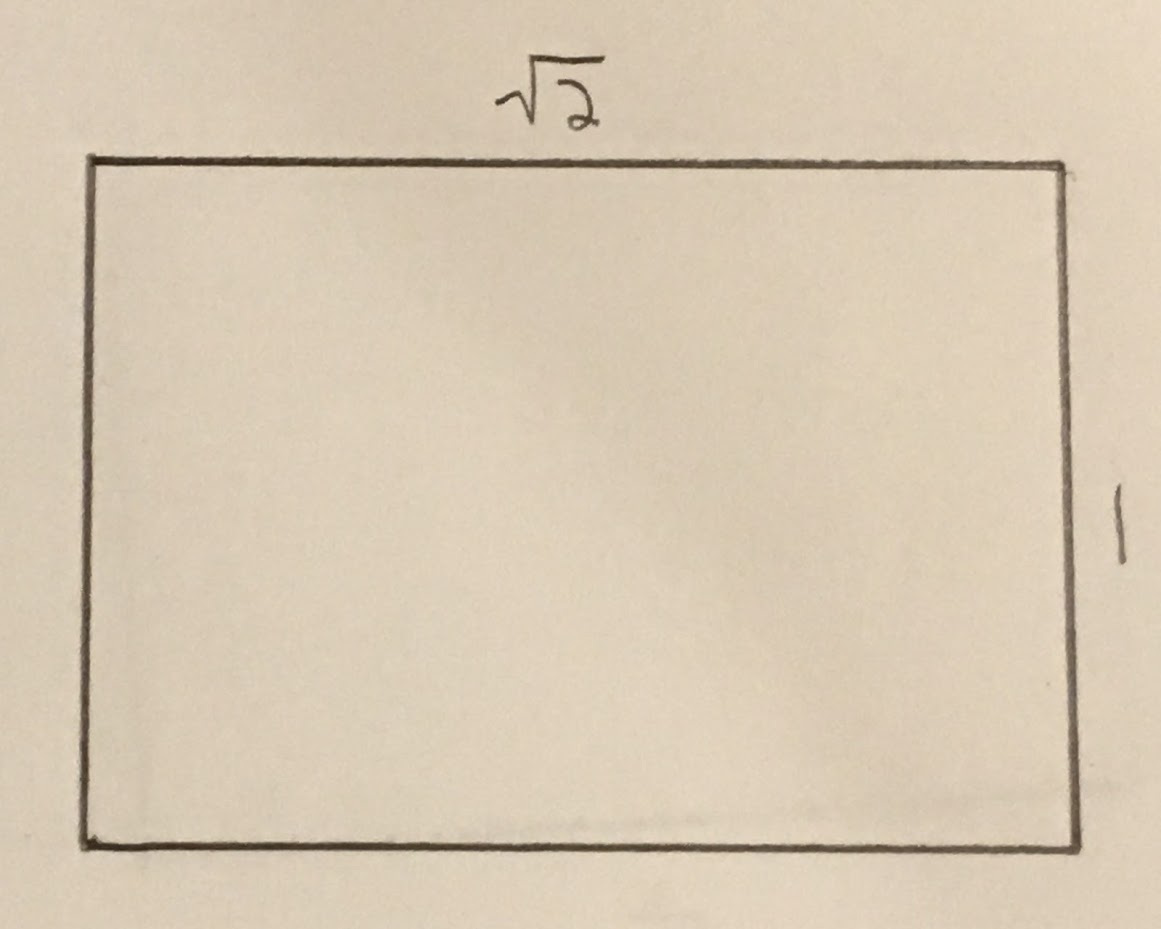 √2
1